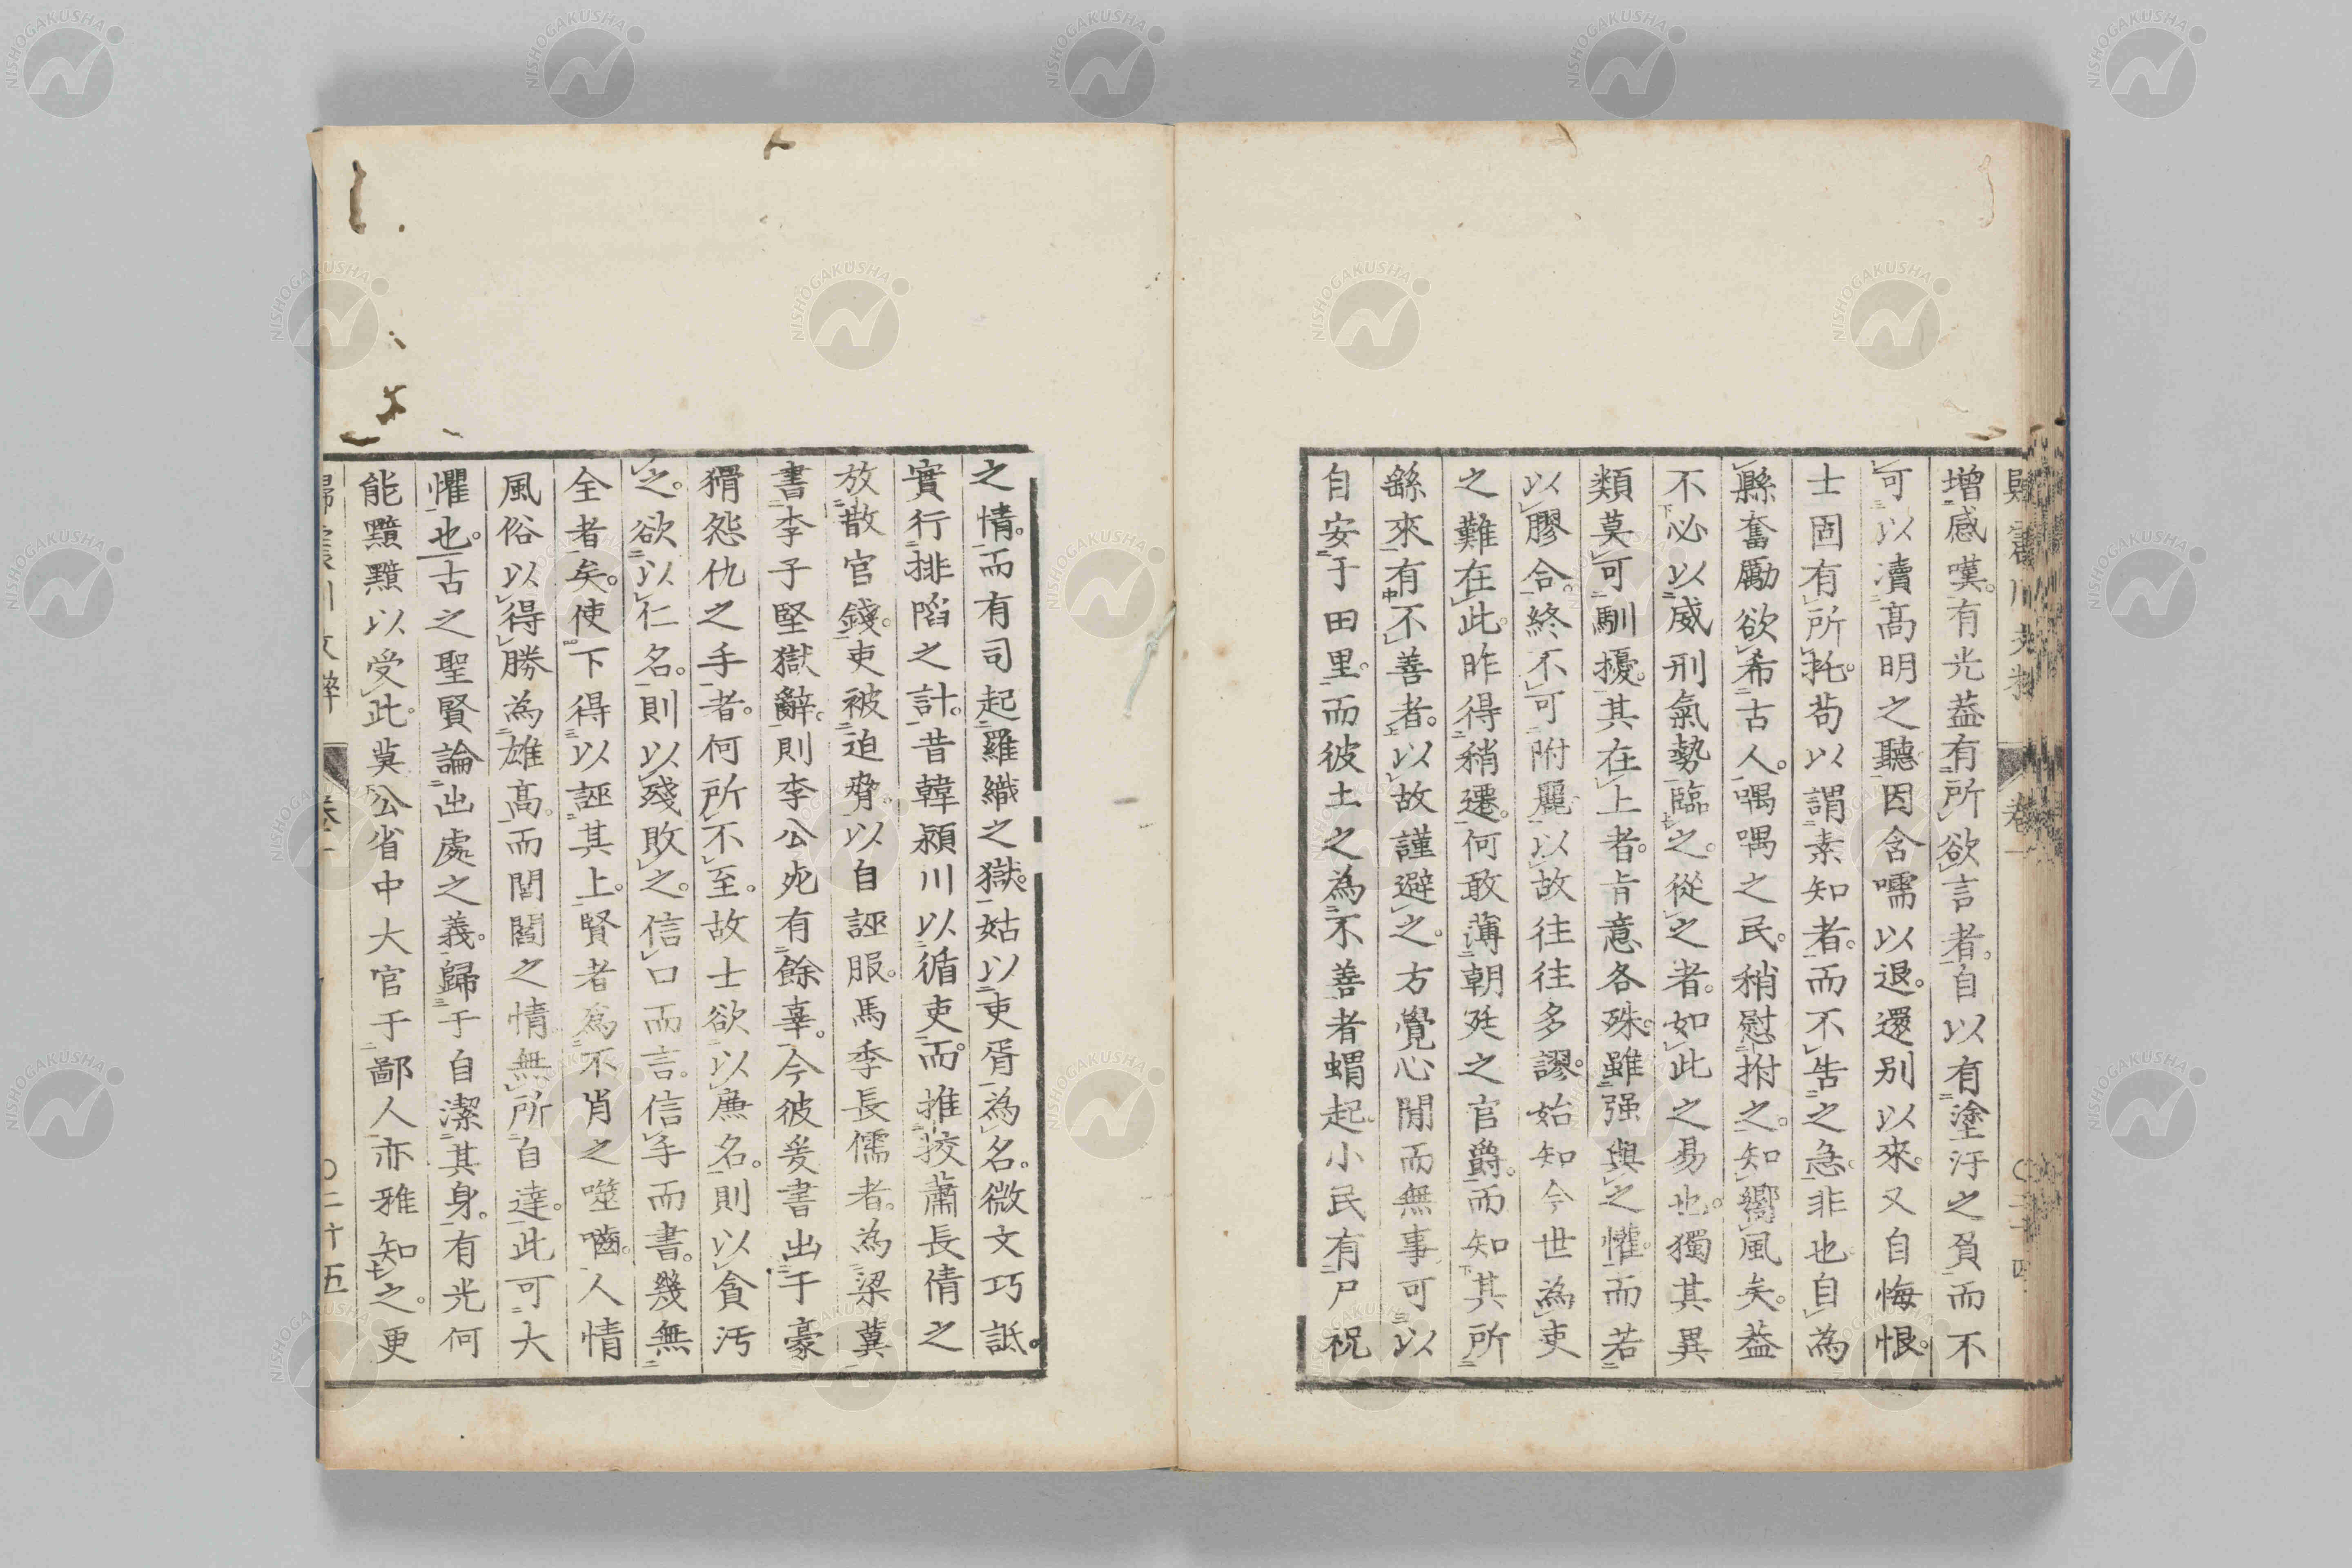 增感嘆。有光葢有所欲言者。自以有塗汙之負而不
可以瀆髙明之聽因含嚅以退。還别以來。又自悔恨。
士固有所托。茍以謂素知者。而不告之急。非也自為
縣奮勵欲希古人。喁喁之民。稍慰拊之。知嚮風矣。葢
不必以威刑氣勢臨之。從之者。如此之易也。獨其異
類莫可馴擾。其在上者。㫖意各殊。雖强與之懽。而若
以膠合。終不可附麗以故往往多謬。始知今世為吏
之難在此。昨得稍遷。何敢薄朝廷之官爵。而知其所
繇來有不善者。以故謹避之。方覺心閒而無事可以
自安于田里。而彼土之為不善者蝟起。小民有尸祝
之情。而有司起羅織之獄。姑以吏胥為名。微文巧詆。
實行排陷之計。昔韓潁川以循吏。而推挍蕭長倩之
放散官錢。吏被迫脅。以自誣服。馬季長儒者。為梁冀
書李子堅獄辭。則李公死有餘辜。今彼爰書出于豪
猾怨仇之手者。何所不至。故士欲以廉名。則以貪汚
之。欲以仁名。則以殘敗之。信口而言。信手而書。幾無
全者矣。使下得以誣其上。賢者為不肖之噬嚙。人情
風俗以得勝為雄髙。而閭閻之情。無所自達。此可大
懼也。古之聖賢論出處之義。歸于自潔其身。有光何
能黯黯以受此。莫公省中大官于鄙人亦雅知之。更
卷一
二十五